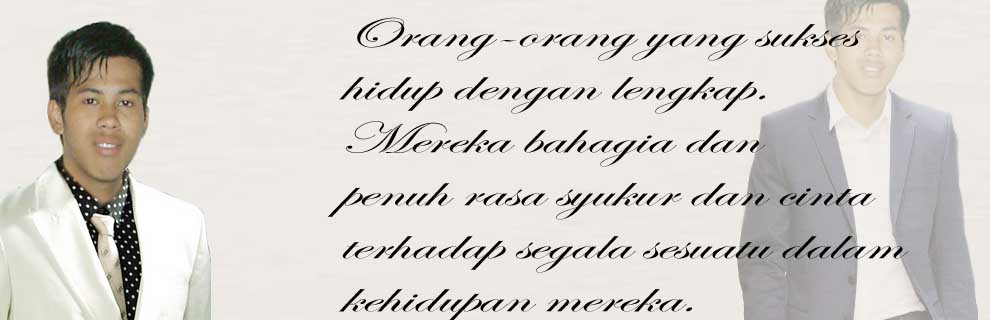 Orang-orang yang sukses
hidup dengan lengkap.
Mereka bahagia dan
penuh rasa syukur dan cinta
terhadap segala sesuatu dalam
kehidupan mereka.